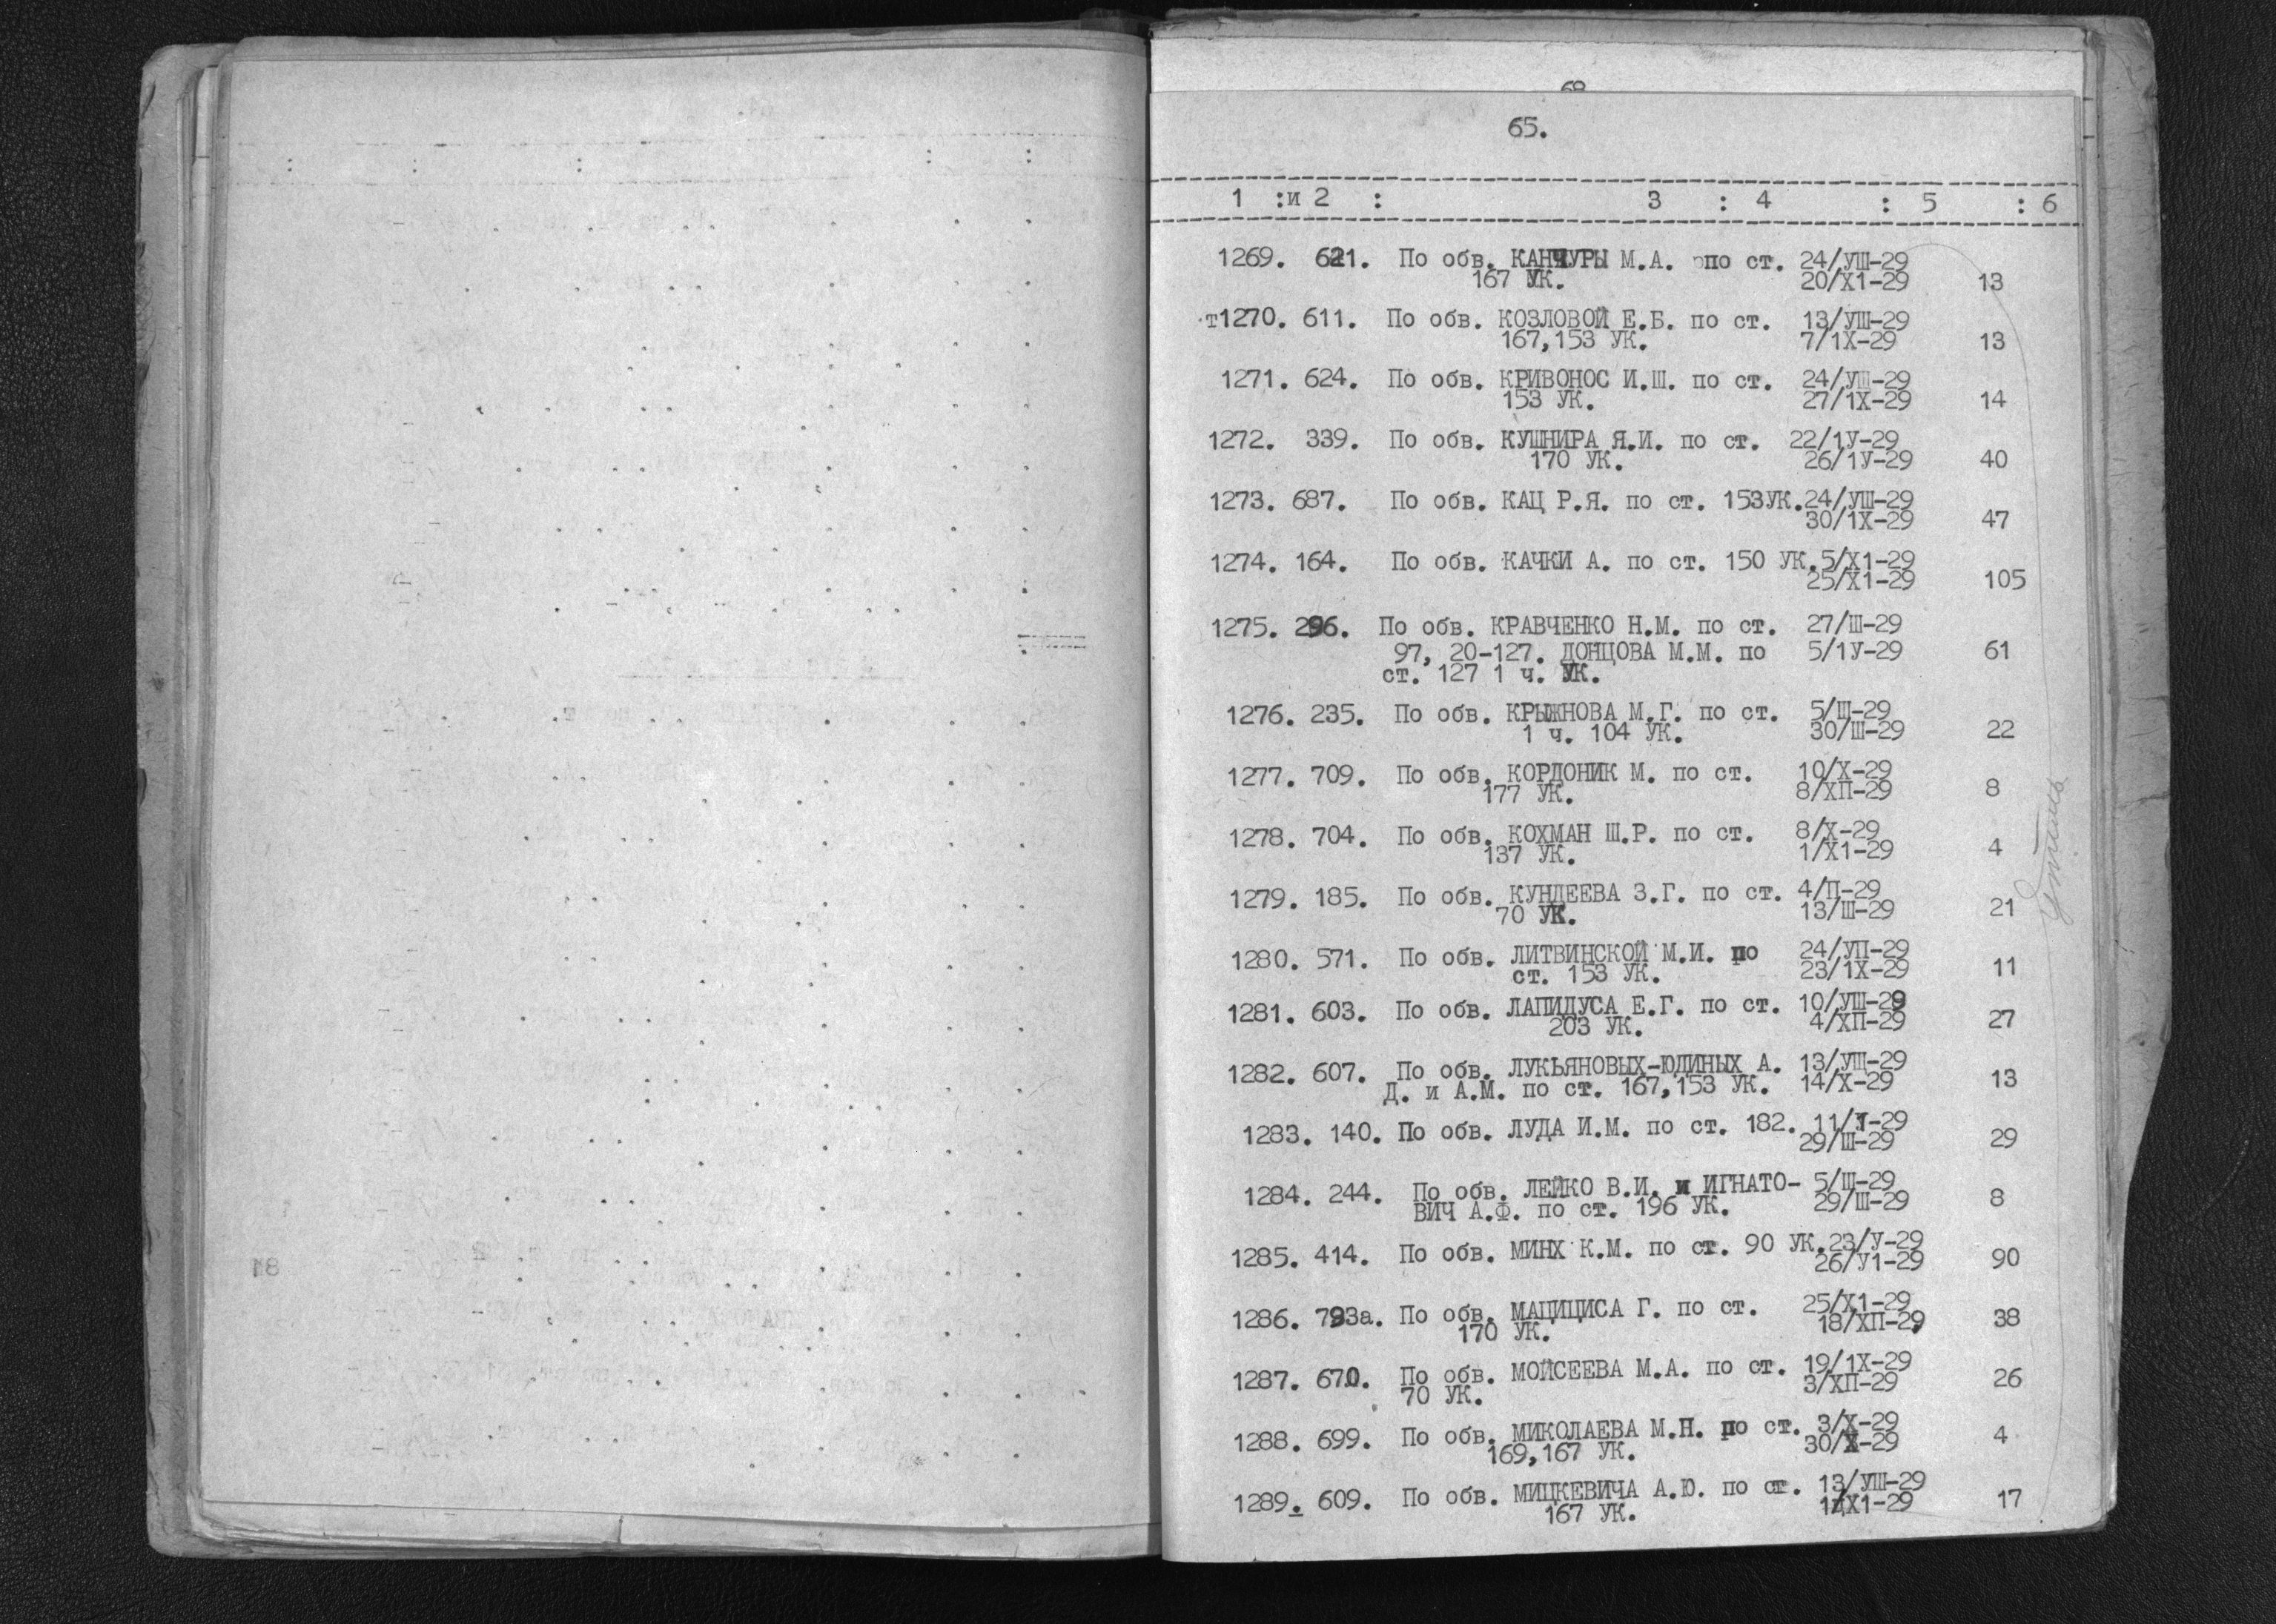 65.
1 :и 2 : 3 : 4 : 5 : 6
1269. 621. По обв. КАНЧУРЫ М.А. по ст. 24/УШ-29
167 УК. 20/Х1-29 13
т1270. 611. По обв. КОЗЛОВОЙ Е.Б. по ст. 13/УШ-29
167,153 УК. 7/1Х-29 13
1271. 624. По обв. КРИВОНОС И.Ш. по ст. 24/УШ-29
153 УК. 27/1Х-29 14
1272. 339. По обв. КУШНИРА Я.И. по ст. 22/1У-29
170 УК. 26/1У-29 40
1273. 687. По обв. КАЦ Р.Я. по ст. 153УК.24/УШ-29
30/1Х-29 47
1274. 164. По обв. КАЧКИ А. по ст. 150 УК.5/Х1-29
25/Х1-29 105
1275. 296. По обв. КРАВЧЕНКО Н.М. по ст. 27/Ш-29
97, 20-127. ДОНЦОВА М.М. по 5/1У-29 61
ст. 127 1 ч. УК.
1276. 235. По обв. КРЫЖНОВА М.Г. по ст. 5/Ш-29
1 ч. 104 УК. 30/Ш-29 22
1277. 709. По обв. КОРДОНИК М. по ст. 10/Х-29
177 УК. 8/ХП-29 8
1278. 704. По обв. КОХМАН Ш.Р. по ст. 8/Х-29
137 УК. 1/Х1-29 4
1279. 185. По обв. КУНДЕЕВА З.Г. по ст. 4/П-29
70 УК. 13/Ш-29 21
1280. 571. По обв. ЛИТВИНСКОЙ М.И. по 24/УП-29
ст. 153 УК. 23/1Х-29 11
1281. 603. По обв. ЛАПИДУСА Е.Г. по ст. 10/УШ-29
203 УК. 4/ХП-29 27
1282. 607. По обв. ЛУКЬЯНОВЫХ-ЮДИНЫХ А. 13/УЩ-29
Д. и А.М. по ст. 167,153 УК. 14/Х-29 13
1283. 140. По обв. ЛУДА И.М. по ст. 182. 11/1-29
29/Ш-29 29
1284. 244. По обв. ЛЕЙКО В.И. и ИГНАТО- 5/Ш-29
ВИЧ А.Ф. по ст. 196 УК. 29/Ш-29 8
1285. 414. По обв. МИНХ К.М. по ст. 90 УК.23/У-29
26/У1-29 90
1286. 793а. По обв. МАЦИЦИСА Г. по ст. 25/Х1-29
170 УК. 18/ХП-29 38
1287. 670. По обв. МОЙСЕЕВА М.А. по ст. 19/1Х-29
70 УК. 3/ХП-29 26
1288. 699. По обв. МИКОЛАЕВА М.Н. по ст. 3/Х-29
169,167 УК. 30/Х-29 4
1289. 609. По обв. МИЦКЕВИЧА А.Ю. по ст. 13/УШ-29
167 УК. 17